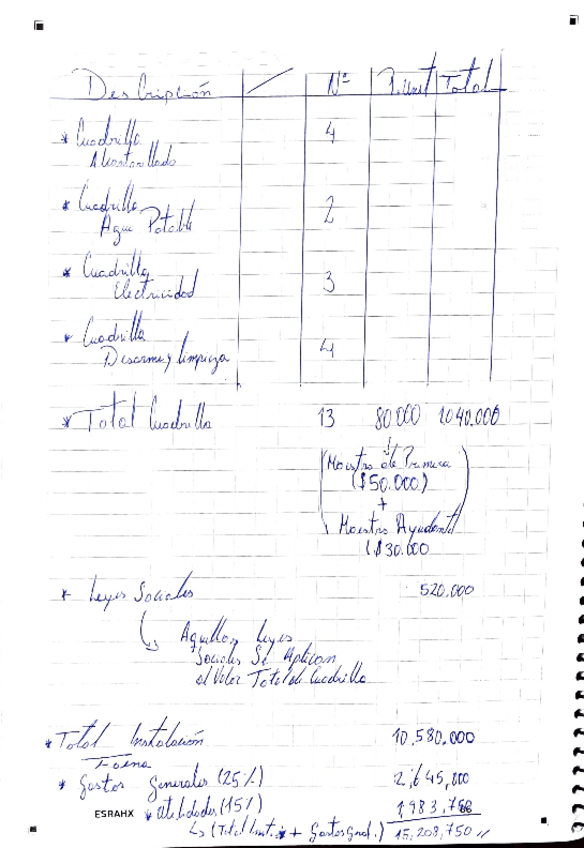 Descripción Nº P.unit Total
* Cuadrilla 4
Alcantarillado
* Cuadrilla 2
Agua Potable
* Cuadrilla 3
Electricidad
* Cuadrilla 4
Desarme y limpieza
* Total Cuadrilla 13 80 000 1.040.000
(Maestro de Primera
($50.000)
+
Maestro Ayudante)
($30.000
* Leyes Sociales 520.000
Aquellas leyes
Sociales Se Aplican
al Valor Total de Cuadrilla
* Total Instalación 10.580.000
Faena
* Gastos Generales (25%) 2,645,000
* utilidades (15%) 1983,750
↳ (Total Inst. + Gastos Gnal.) 15,208,750 //
ESRAHX